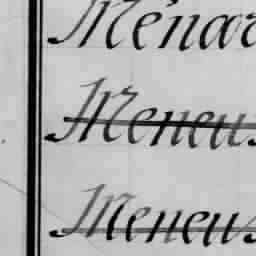 Menar
Meneus
Meneus